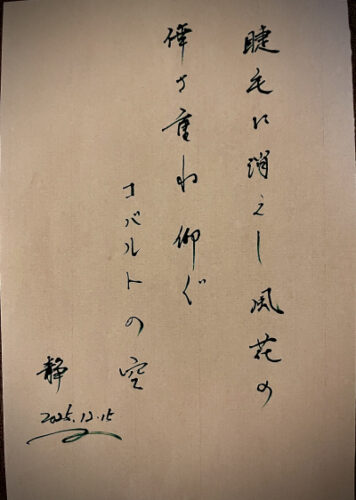 睫毛に消えし風花の
儚さ重ね仰ぐ
コバルトの空
静
2025.12.15